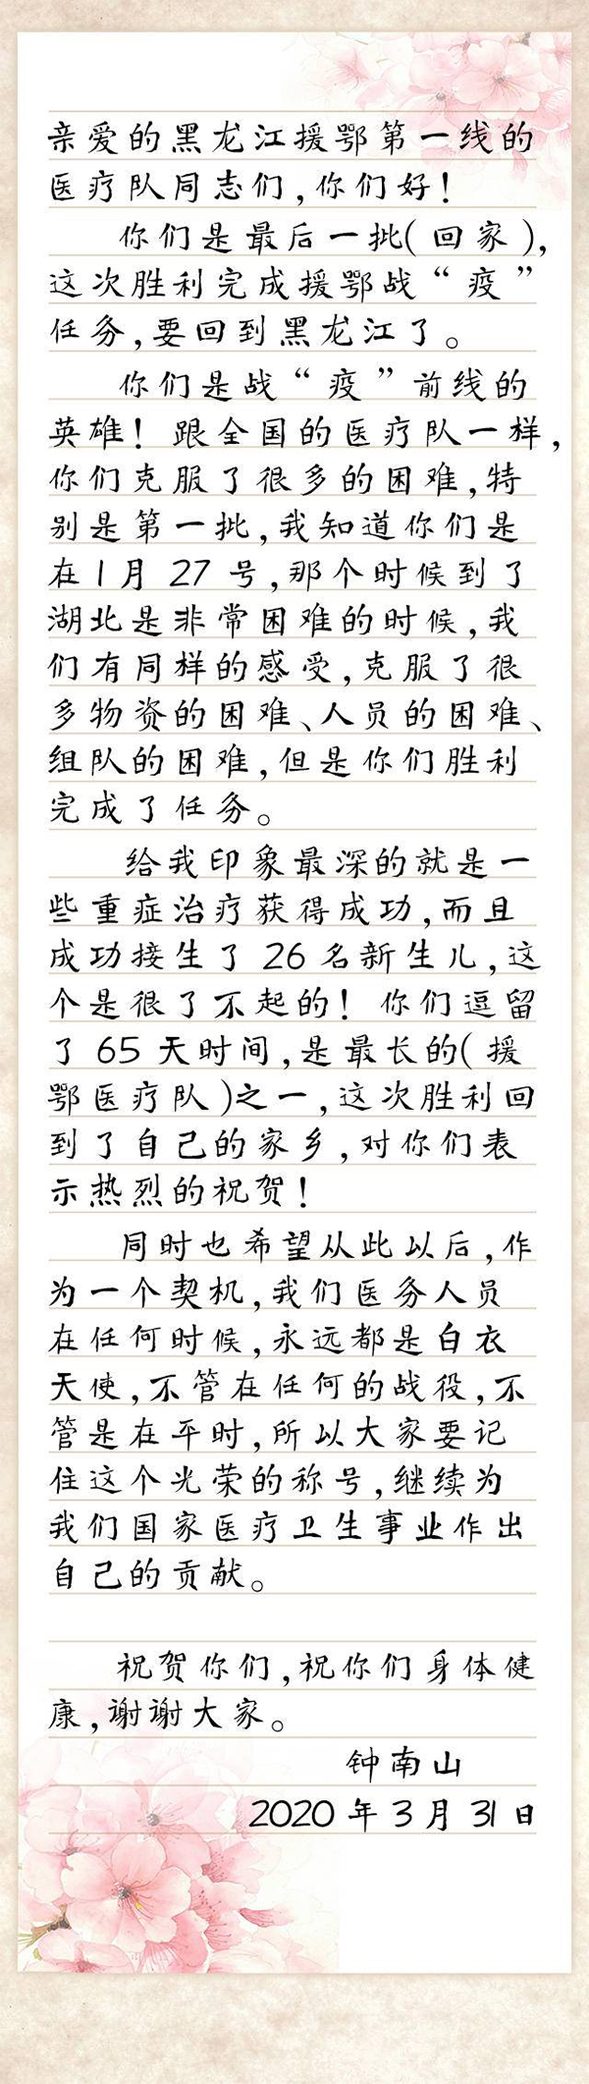 亲爱的黑龙江援鄂第一线的
医疗队同志们,你们好!
你们是最后一批(回家),
这次胜利完成援鄂战“疫”
任务,要回到黑龙江了。
你们是战“疫”前线的
英雄!跟全国的医疗队一样,
你们克服了很多的困难,特
别是第一批,我知道你们是
在1月27号,那个时候到了
湖北是非常困难的时候,我
们有同样的感受,克服了很
多物资的困难、人员的困难、
组队的困难,但是你们胜利
完成了任务。
给我印象最深的就是一
些重症治疗获得成功,而且
成功接生了26名新生儿,这
个是很了不起的!你们逗留
了65天时间,是最长的(援
鄂医疗队)之一,这次胜利回
到了自己的家乡,对你们表
示热烈的祝贺!
同时也希望从此以后,作
为一个契机,我们医务人员
在任何时候,永远都是白衣
天使,不管在任何的战役,不
管是在平时,所以大家要记
住这个光荣的称号,继续为
我们国家医疗卫生事业作出
自己的贡献。
祝贺你们,祝你们身体健
康,谢谢大家。
钟南山
2020年3月31日